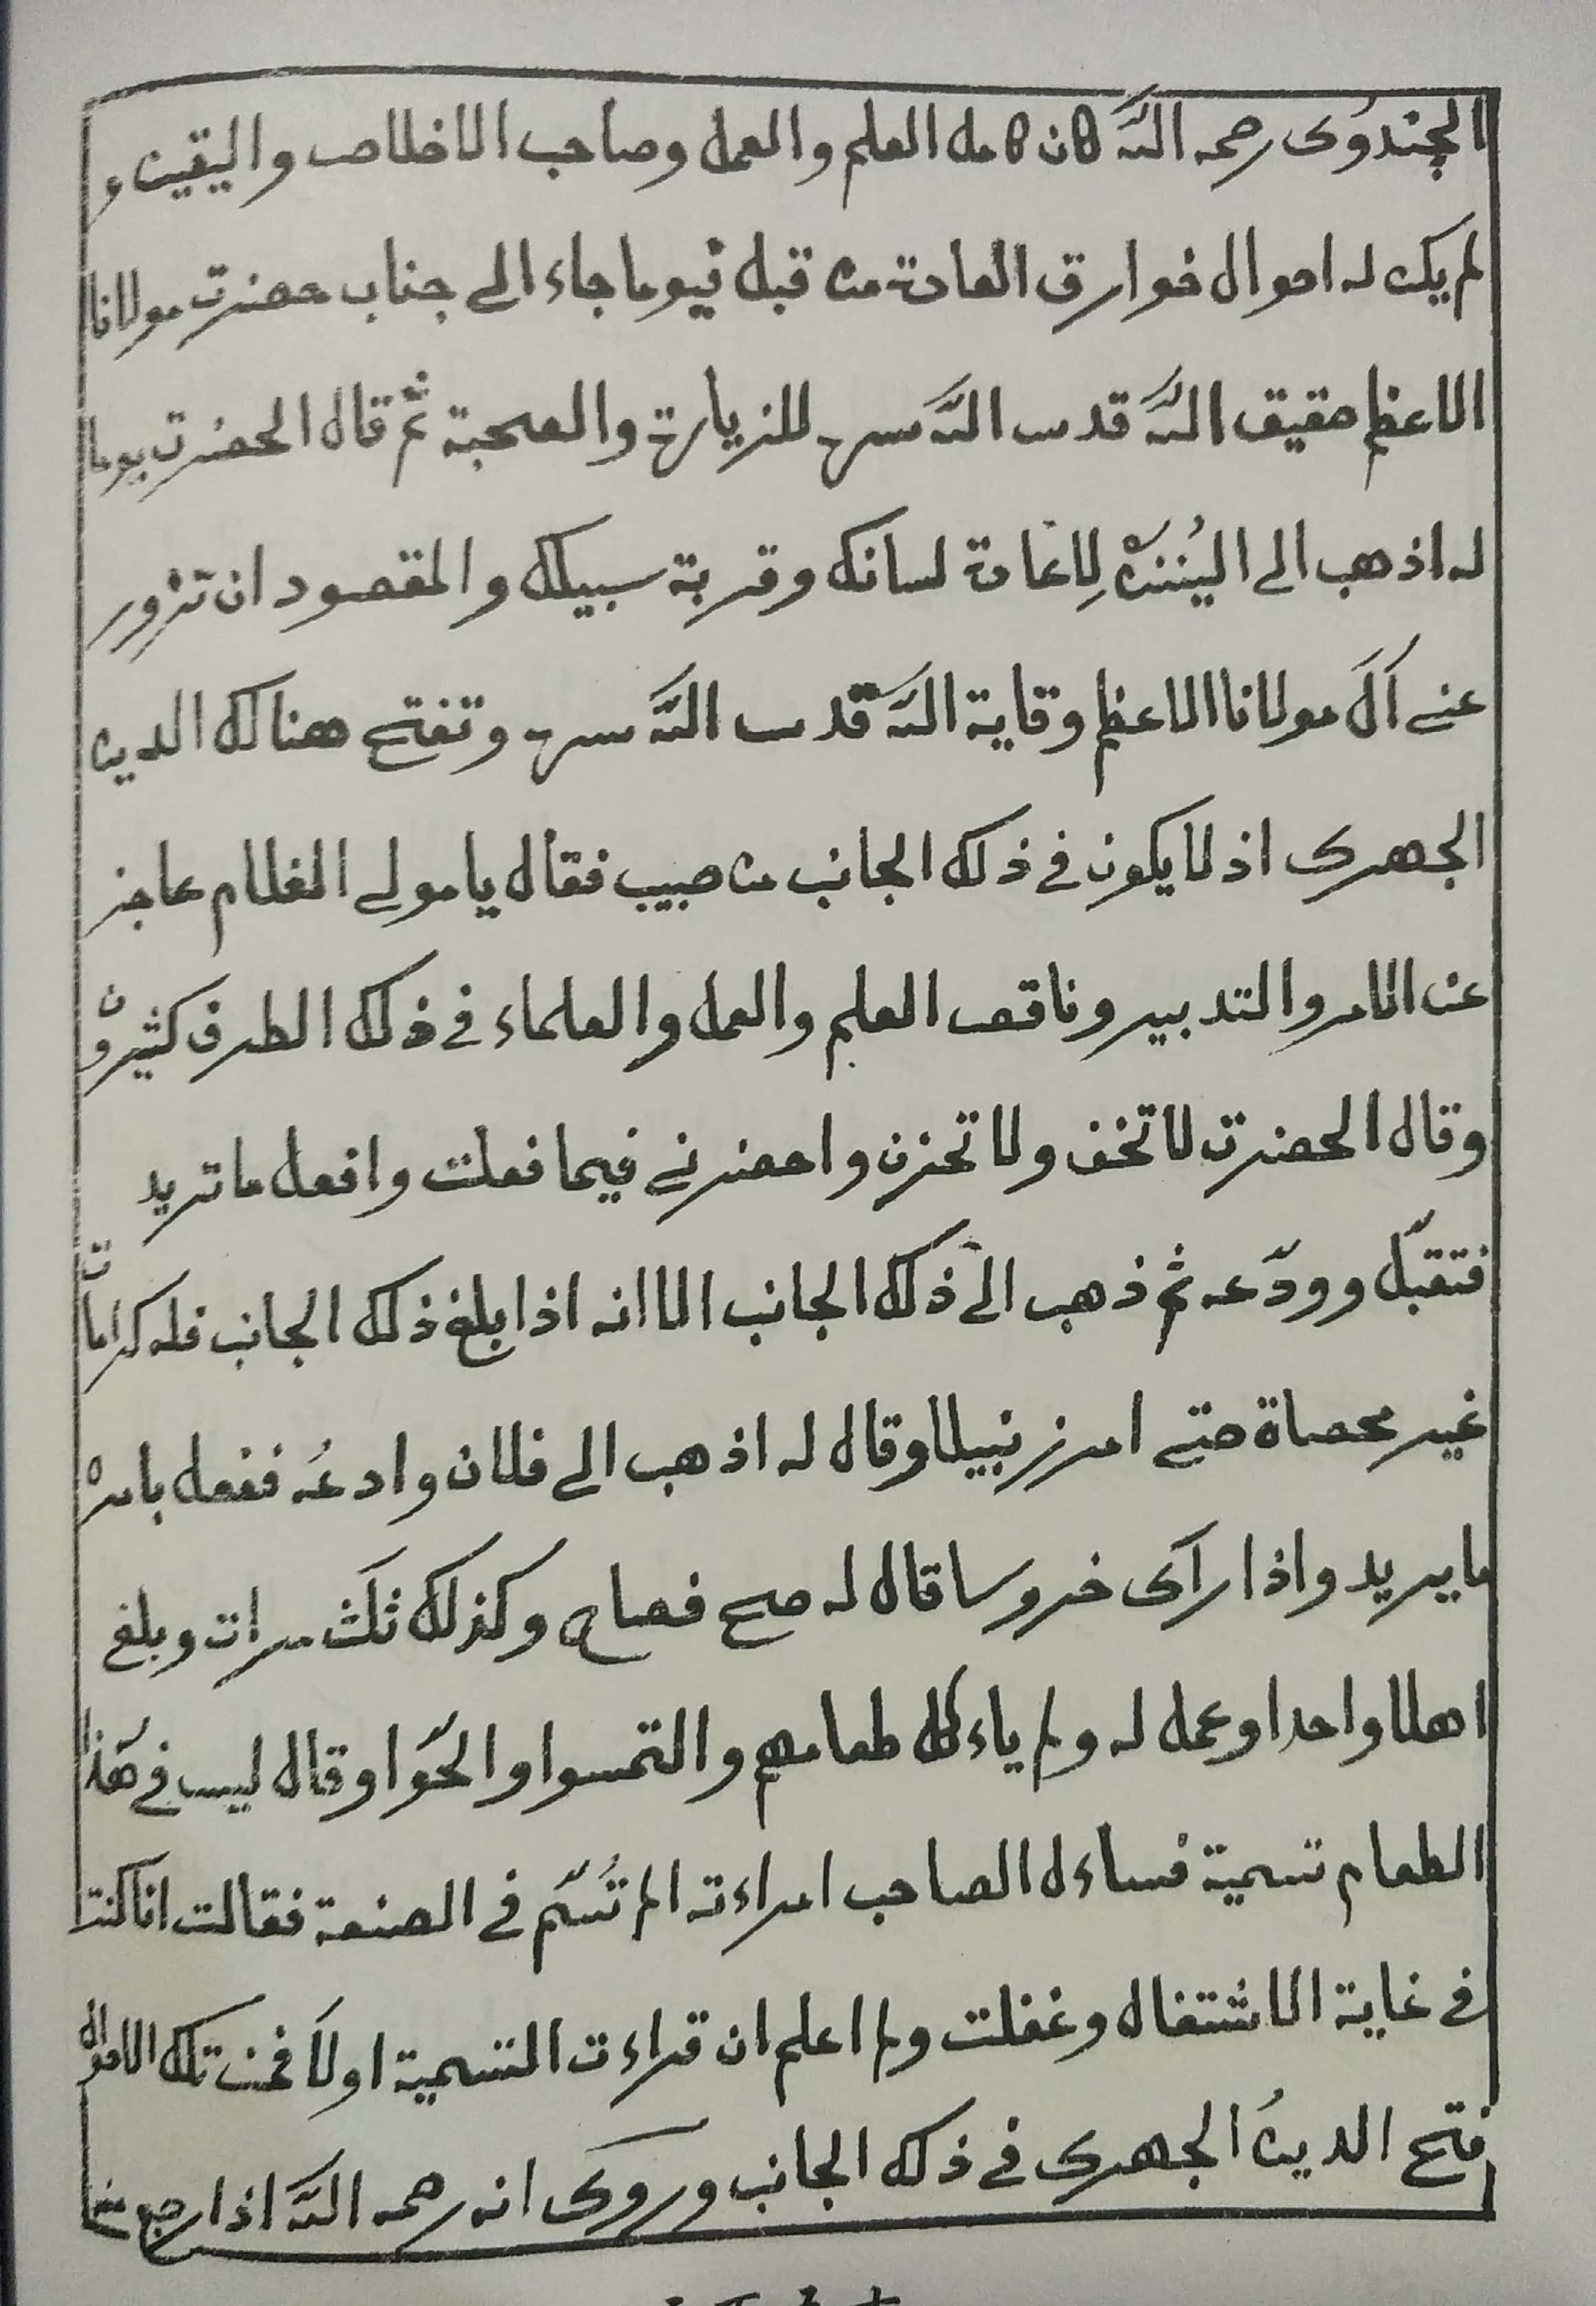 الچندوى رحمه الله كان كامل العلم والعمل وصاحب الاخلاص واليقين و
لم يكن له احوال خوارق العادة من قبل فيوما جاء الى جناب حضرت مولانا
الاعظم حقيق الله قدس الله سره للزيارة والصحبة ثم قال الحضرت يوما
له اذهب الى اليُننْ لِاعادة لسانك وقربة سبيلك والمقصود ان تزور
عنى آل مولانا الاعظم وقاية الله قدس الله سره وتفتح هناك الدين
الجهرى اذ لا يكون فى ذلك الجانب من حبيب فقال يا مولى الغلام عاجز
عن الامر والتدبير وناقص العلم والعمل والعلماء فى ذلك الطرف كثيرون
وقال الحضرت لا تخف ولا تحزن واحضرنى فيما فعلت وافعل ما تريد
فتقبّل وودّعه ثم ذهب الى ذلك الجانب الا انه اذا بلغ ذلك الجانب فله كرامات
غير محصاة حتى امر زنبيلا وقال له اذهب الى فلان وادعُه ففعل بامره
ما يريد واذا رآى خروسا قال له صح فصاح وكذلك ثلث مرات وبلغ
اهلا واحدا وعمل له ولم ياءكل طعامهم والتمسوا والحّوا وقال ليس فى هذا
الطعام تسمية فساءل الصاحب امراءته الم تُسَمّ فى الصنعة فقالت انا كنت
فى غاية الاشتغال وغفلت ولم اعلم ان قراءت التسمية اولا فمن تلك الاحوال
فتح الدينُ الجهرى فى ذلك الجانب وروى انه رحمه الله اذا رجع